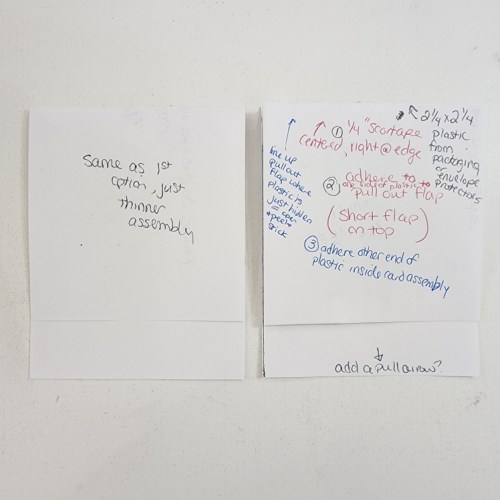 Same as 1st
option, just
thinner
assembly
2 1/4 x 2 1/4
plastic
from
packaging
or
envelope
protectors
① 1/4" scortape
centered, right @ edge
② adhere to
one side of plastic to
pull out flap
(short flap
on top)
③ adhere other end of
plastic inside card assembly
line up
pull out
flap where
plastic is
just hidden
= can
peel +
stick
add a pull arrow?